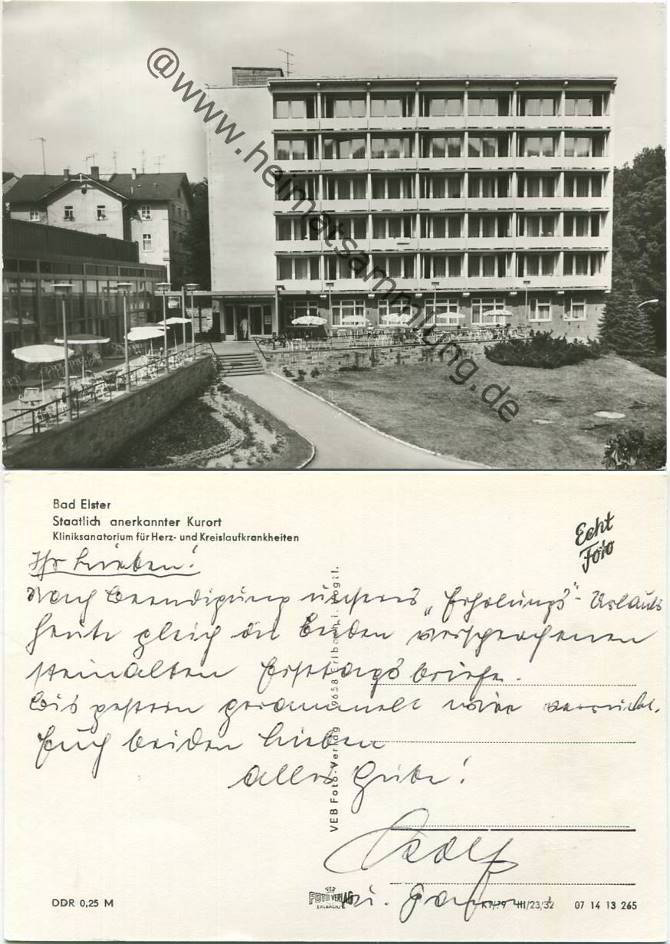 @www.heimatsammlung.de
Bad Elster
Staatlich anerkannter Kurort
Kliniksanatorium für Herz- und Kreislaufkrankheiten
Echt
Foto
Ihr Lieben!
Nach Beendigung unseres „Erholungs"-Urlaubs
heute gleich die beiden versprochenen
steinalten Ersttagsbriefe.
Bis gestern gerammelt wie verrückt.
Euch beiden Lieben
alles Gute!
VEB Foto-Verlag 9658 Erlbach i. Vogtl.
DDR 0,25 M
FOTO VERLAG
ERLBACH
III/23/32 07 14 13 265